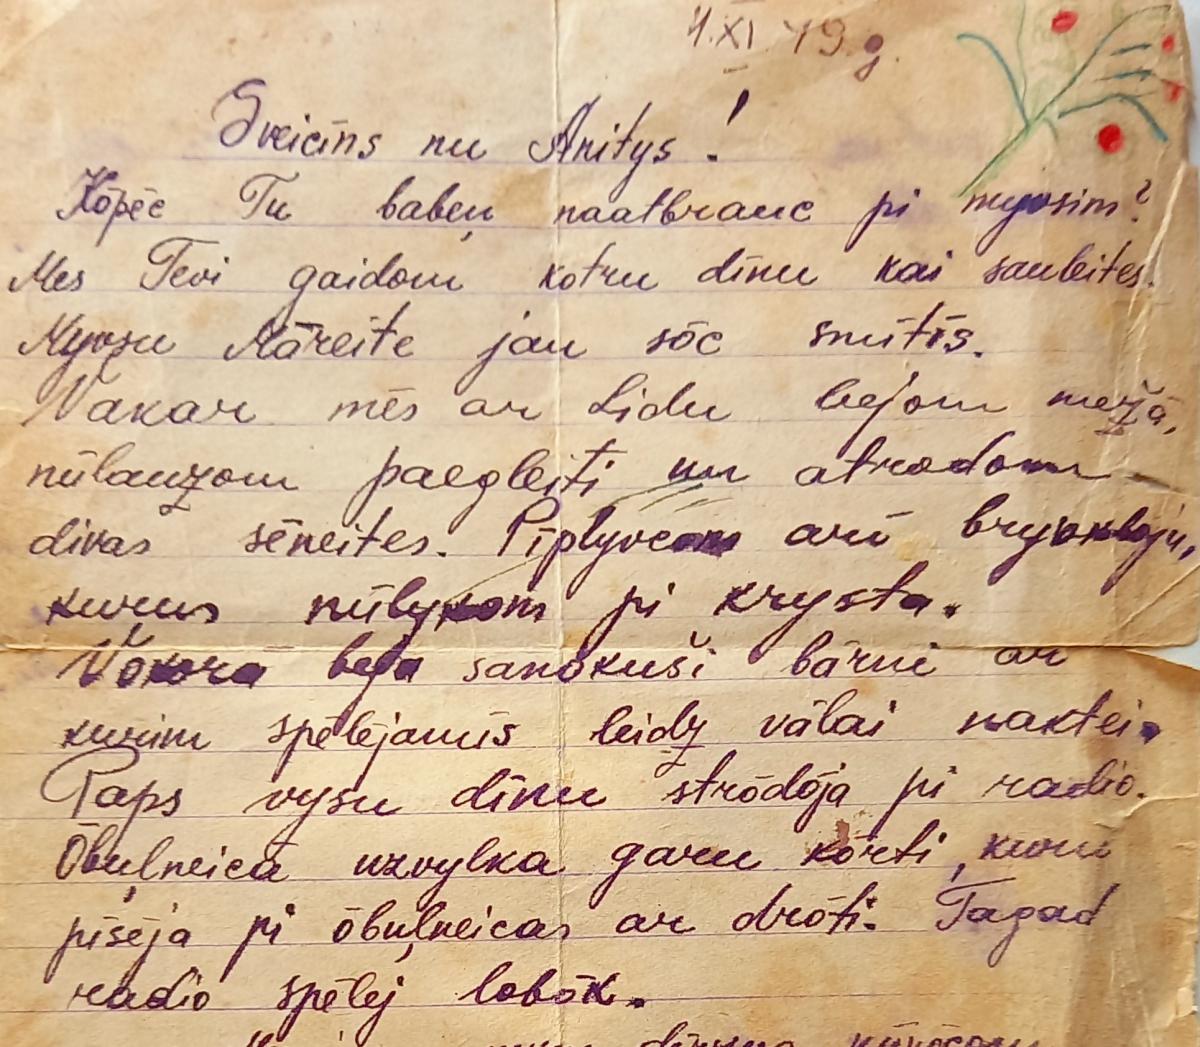 4.XI 49.g.
Sveicīns nu Anitys!
Kōpēc Tu babeņ naatbrauc pi myusim?
Mes Tevi gaidom kotru dīnu kai sauleites.
Myusu Māreite jau sōc smītīs.
Vakar mēs ar Lidu bejom mežā,
nūlauzom paegleiti un atrodom
divas sēneites. Pīplyucom arī bryukloju,
kurus nūlykom pi krysta.
Vokora beja sanōkuši bārni ar
kurim spēlējamūs leidz vālai naktei.
Paps vysu dīnu strōdōja pi radio.
Ōbuļneicā uzvylka garu kōrti, kuru
pīsēja pi ōbuļneicas ar drōti. Tagad
radio spēlej lobōk.